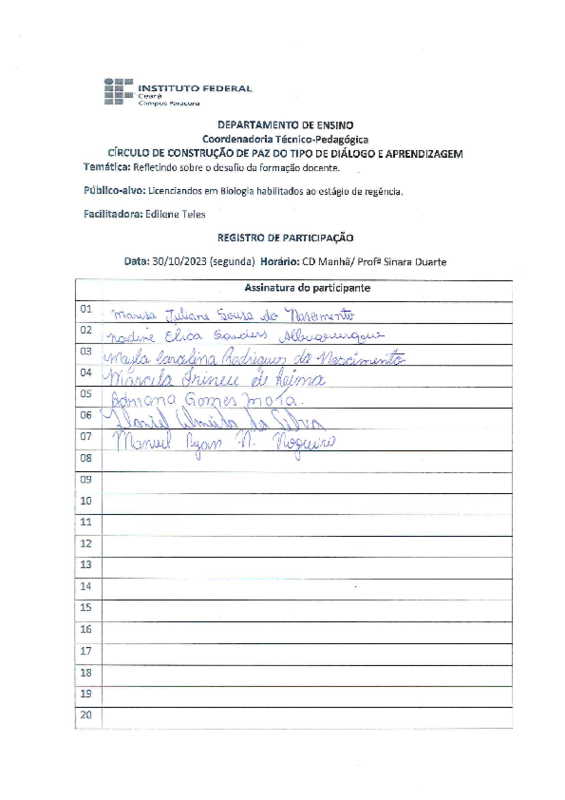 INSTITUTO FEDERAL
Ceará
Campus Paracuru
DEPARTAMENTO DE ENSINO
Coordenadoria Técnico-Pedagógica
CÍRCULO DE CONSTRUÇÃO DE PAZ DO TIPO DE DIÁLOGO E APRENDIZAGEM
Temática: Refletindo sobre o desafio da formação docente.
Público-alvo: Licenciandos em Biologia habilitados ao estágio de regência.
Facilitadora: Edilene Teles
REGISTRO DE PARTICIPAÇÃO
Data: 30/10/2023 (segunda) Horário: CD Manhã/ Profª Sinara Duarte
Assinatura do participante
01 Juliana Sousa do Nascimento
02 Albuquerque
03 Carolina Rodrigues do Nascimento
04 Márcila Irineu de
05 Adriana Gomes mota.
06 Daniel Almeida da Silva
07 Manuel Ryan N. Nogueira
08
09
10
11
12
13
14
15
16
17
18
19
20